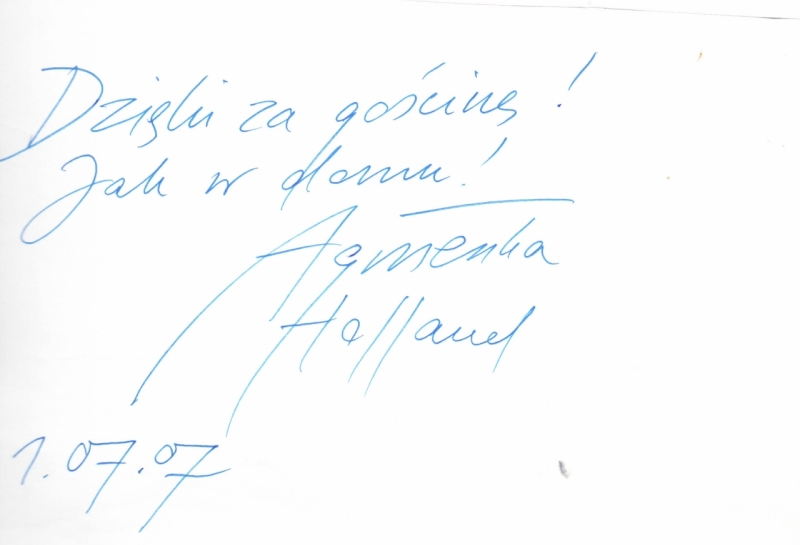 Dzięki za gościnę!
Jak w domu!
Agnieszka
Holland
1.07.07